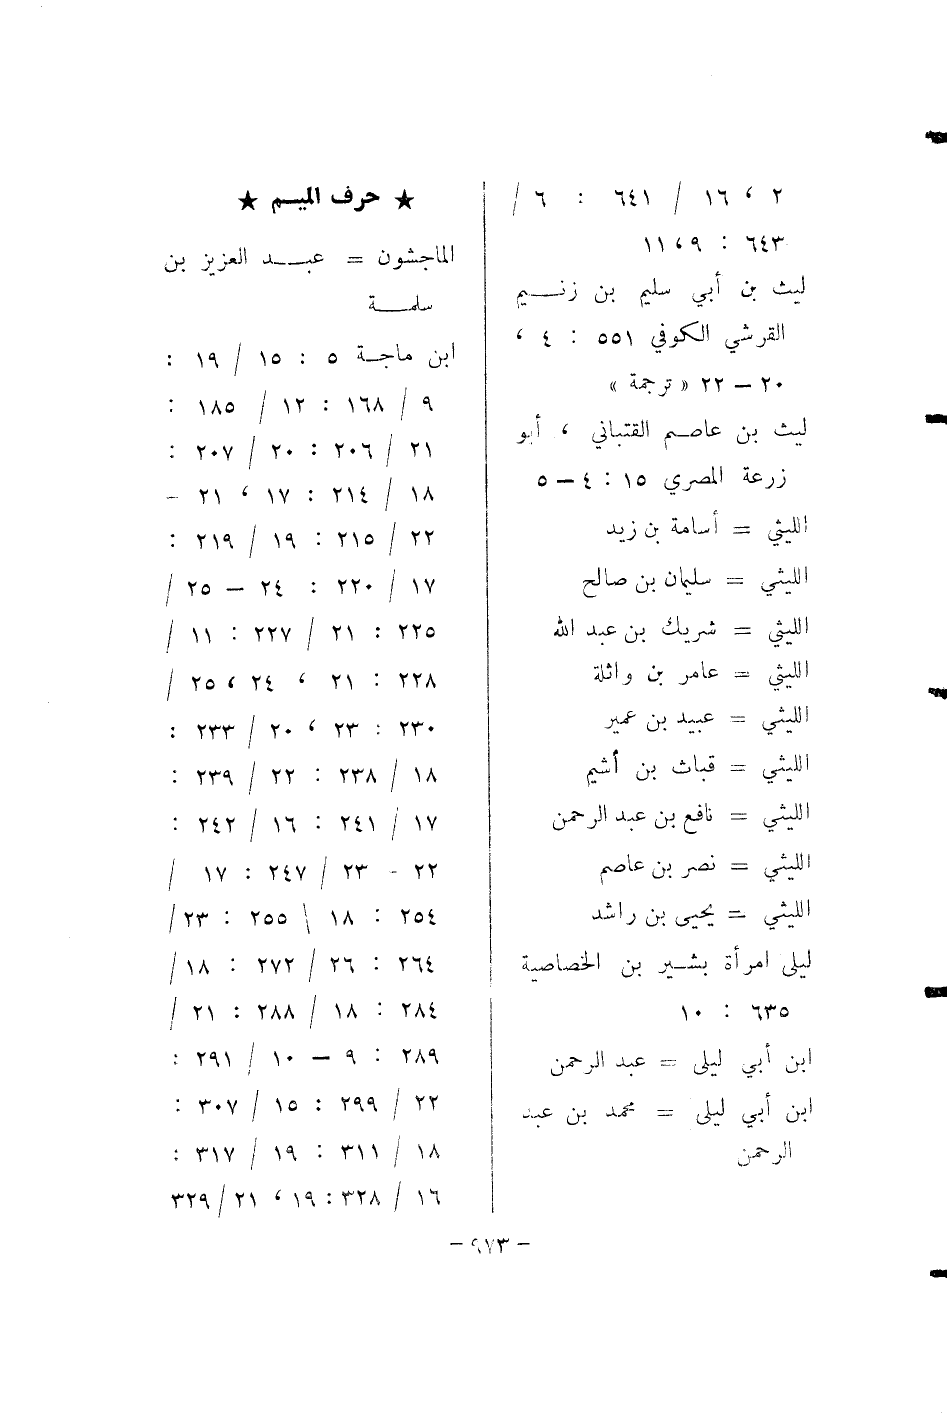 ٢ ، ١٦ / ٦٤١ : ٦ /
٦٤٣ : ٩ ، ١١
ليث بن أبي سليم بن زنـيم
القرشي الكوفي ٥٥١ : ٤ ،
٢٠ – ٢٢ « ترجمة »
ليث بن عاصم القتباني ، أبو
زرعة المصري ١٥ : ٤ – ٥
الليثي = أسامة بن زيد
الليثي = سليمان بن صالح
الليثي = شريك بن عبد الله
الليثي = عامر بن واثلة
الليثي = عبيد بن عمير
الليثي = قباث بن أشيم
الليثي = نافع بن عبد الرحمن
الليثي = نصر بن عاصم
الليثي = يحيى بن راشد
ليلى امرأة بشـير بن الخصاصية
٦٣٥ : ١٠
ابن أبي ليلى = عبد الرحمن
ابن أبي ليلى = محمد بن عبد
الرحمن
★ حرف الميـم ★
الماجشون = عبـد العزيز بن
سلمـة
ابن ماجـة ٥ : ١٥ / ١٩ :
٩ / ١٦٨ : ١٢ / ١٨٥ :
٢١ / ٢٠٦ : ٢٠ / ٢٠٧ :
١٨ / ٢١٤ : ١٧ ، ٢١ -
٢٢ / ٢١٥ : ١٩ / ٢١٩ :
١٧ / ٢٢٠ : ٢٤ – ٢٥ /
٢٢٥ : ٢١ / ٢٢٧ : ١١ /
٢٢٨ : ٢١ ، ٢٤ ، ٢٥ /
٢٣٠ : ٢٣ ، ٢٠ / ٢٣٣ :
١٨ / ٢٣٨ : ٢٢ / ٢٣٩ :
١٧ / ٢٤١ : ١٦ / ٢٤٢ :
٢٢ - ٢٣ / ٢٤٧ : ١٧ /
٢٥٤ : ١٨ \ ٢٥٥ : ٢٣ /
٢٦٤ : ٢٦ / ٢٧٢ : ١٨ /
٢٨٤ : ١٨ / ٢٨٨ : ٢١ /
٢٨٩ : ٩ – ١٠ / ٢٩١ :
٢٢ / ٢٩٩ : ١٥ / ٣٠٧ :
١٨ / ٣١١ : ١٩ / ٣١٧ :
١٦ / ٣٢٨ : ١٩ ، ٢١ / ٣٢٩
– ٩٧٣ –